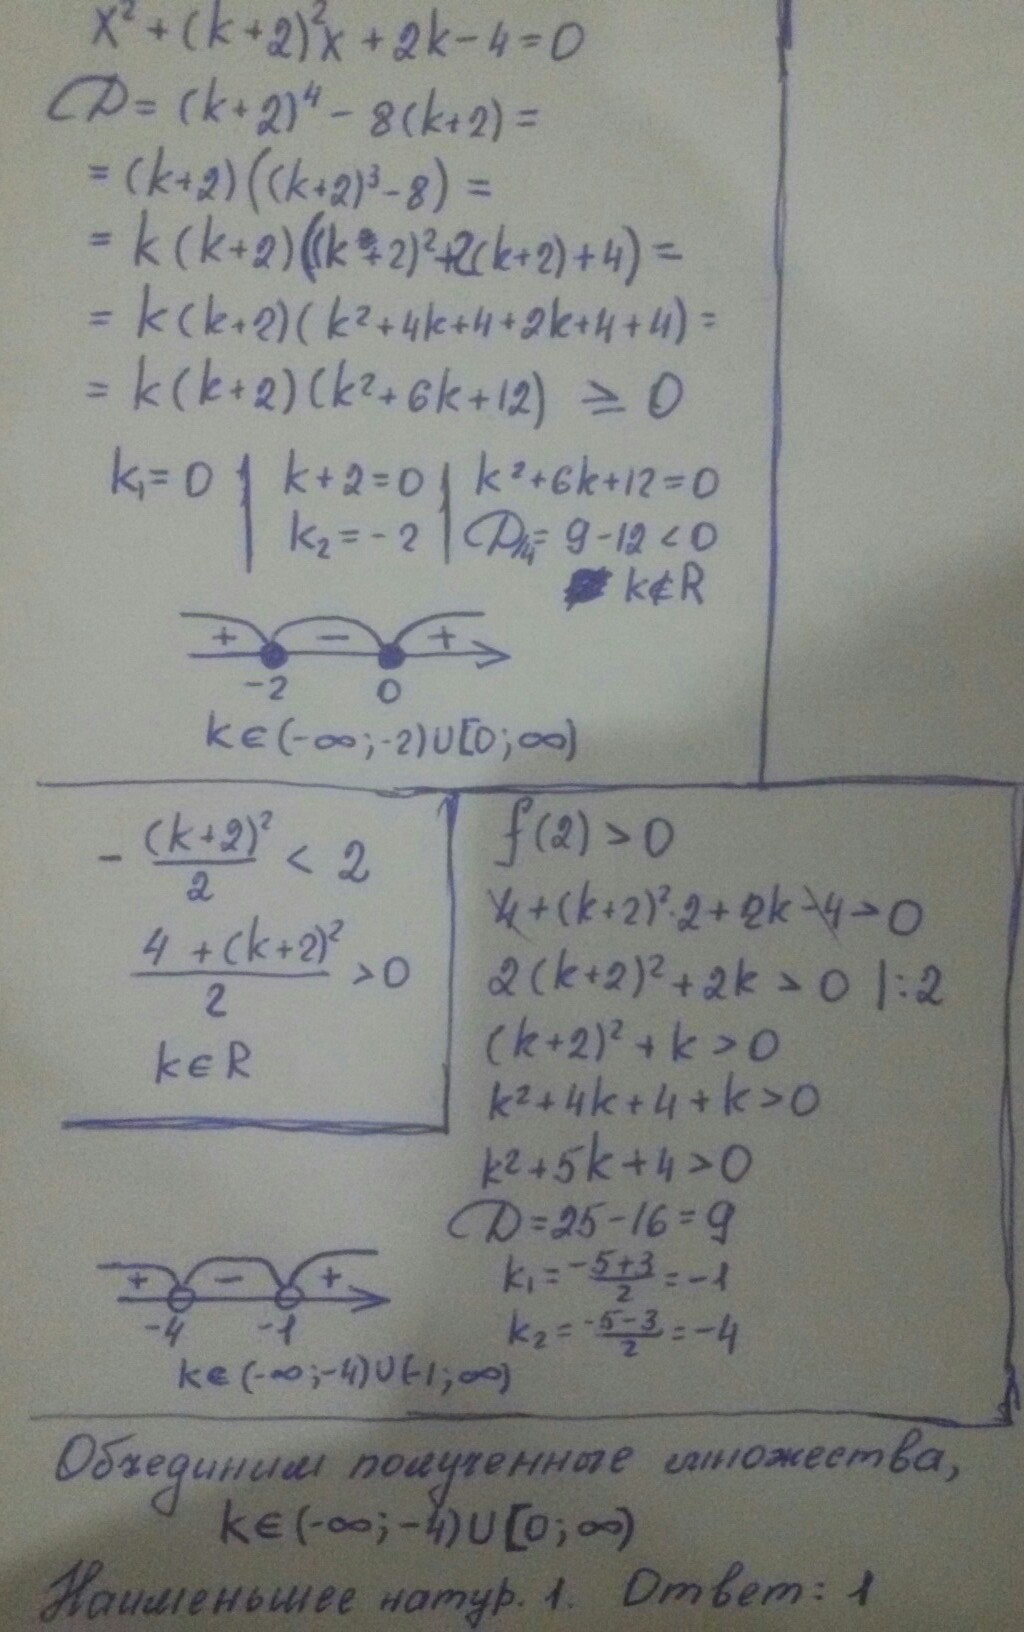 x² + (k+2)²x + 2k - 4 = 0
D = (k+2)⁴ - 8(k+2) =
= (k+2)((k+2)³ - 8) =
= k(k+2)((k+2)²+2(k+2)+4) =
= k(k+2)(k²+4k+4+2k+4+4) =
= k(k+2)(k²+6k+12) ≥ 0
k₁ = 0 | k+2=0 | k²+6k+12=0
k₂ = -2 | D/4 = 9-12 < 0
k∉R
+ - +
-2 0
k∈(-∞;-2)∪[0;∞)
- (k+2)²/2 < 2
4+(k+2)²/2 > 0
k∈R
f(2) > 0
4+(k+2)²·2+2k-4>0
2(k+2)²+2k > 0 |:2
(k+2)²+k > 0
k²+4k+4+k>0
k²+5k+4>0
D=25-16=9
k₁ = -5+3/2 = -1
k₂ = -5-3/2 = -4
+ - +
-4 -1
k∈(-∞;-4)∪(-1;∞)
Объединим полученные множества,
k∈(-∞;-4)∪[0;∞)
Наименьшее натур. 1. Ответ: 1